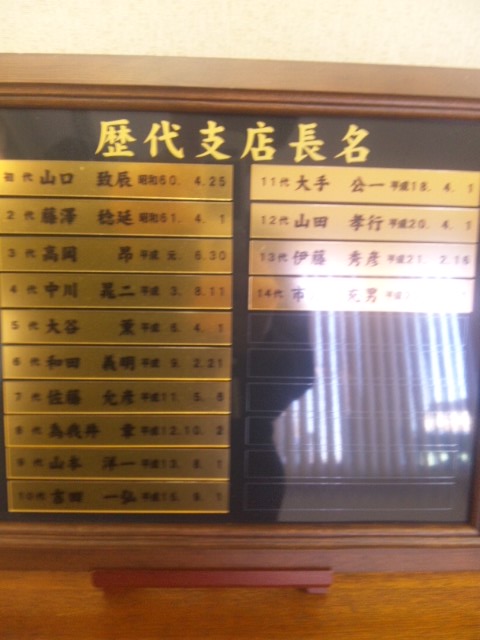 歴代支店長名
初代 山口 致辰 昭和60. 4.25
2代 藤澤 稔延 昭和61. 4. 1
3代 高岡 昂 平成 元. 6.30
4代 中川 晃二 平成 3. 8.11
5代 大谷 薫 平成 6. 4. 1
6代 和田 義明 平成 9. 2.21
7代 佐藤 允彦 平成11. 5. 6
8代 為我井 章 平成12.10. 2
9代 山本 洋一 平成13. 8. 1
10代 吉田 一弘 平成15. 8. 1
11代 大手 公一 平成18. 4. 1
12代 山田 孝行 平成20. 4. 1
13代 伊藤 秀彦 平成21. 2.16
14代 市 男 平成